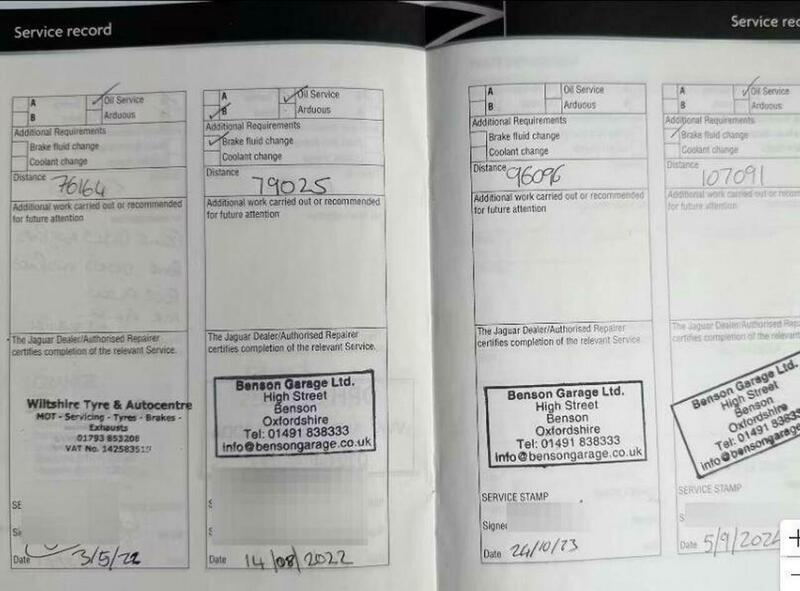 Service record
A
Oil Service
B
Arduous
Additional Requirements
Brake fluid change
Coolant change
Distance 76164
Additional work carried out or recommended
for future attention
The Jaguar Dealer/Authorised Repairer
certifies completion of the relevant Service.
Wiltshire Tyre & Autocentre
MOT - Servicing - Tyres - Brakes -
Exhausts
01793 853208
VAT No. 142583515
Date 3/5/22
A
Oil Service
B
Arduous
Additional Requirements
Brake fluid change
Coolant change
Distance 79025
Additional work carried out or recommended
for future attention
The Jaguar Dealer/Authorised Repairer
certifies completion of the relevant Service.
Benson Garage Ltd.
High Street
Benson
Oxfordshire
Tel: 01491 838333
info@bensongarage.co.uk
Date 14/08/2022
A
Oil Service
B
Arduous
Additional Requirements
Brake fluid change
Coolant change
Distance 96096
Additional work carried out or recommended
for future attention
The Jaguar Dealer/Authorised Repairer
certifies completion of the relevant Service.
Benson Garage Ltd.
High Street
Benson
Oxfordshire
Tel: 01491 838333
info@bensongarage.co.uk
SERVICE STAMP
Date 24/10/23
Service rec
A
Oil Service
B
Arduous
Additional Requirements
Brake fluid change
Coolant change
Distance 107091
Additional work carried out or recom
for future attention
The Jaguar Dealer/Authorised Repa
certifies completion of the relevant
Benson Garage Ltd.
High Street
Benson
Oxfordshire
Tel: 01491 83833
info@bensongarage.co
SERVICE STAMP
Date 5/9/2024